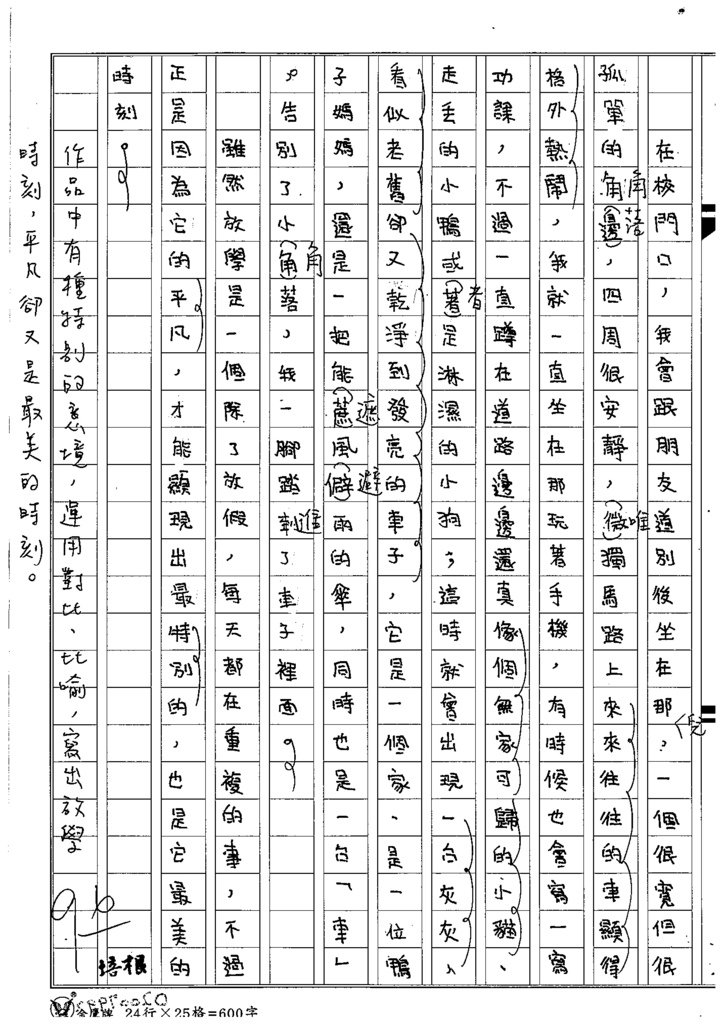 在校門口，我會跟朋友道別後坐在那，一個很寬但很
孤單的角邊，四周很安靜，微獨馬路上來來往往的車顯得
角落
唯
格外熱鬧，我就一直坐在那玩著手機，有時候也會寫一寫
功課，不過一直蹲在道路邊邊還真像個無家可歸的小貓、
走丟的小鴨或著是淋濕的小狗；這時就會出現一台灰灰、
者
看似老舊卻又乾淨到發亮的車子，它是一個家、是一位鴨
子媽媽，還是一把能蔗風僻雨的傘，同時也是一台「車」
遮
避
。告別了小角落，我一腳踏到了車子裡面。
角
進
雖然放學是一個除了放假，每天都在重複的事，不過
正是因為它的平凡，才能顯現出最特別的，也是它最美的
時刻。
作品中有種特別的意境，運用對比、比喻，寫出放學
時刻，平凡卻又是最美的時刻。
96
培根
24行×25格=600字